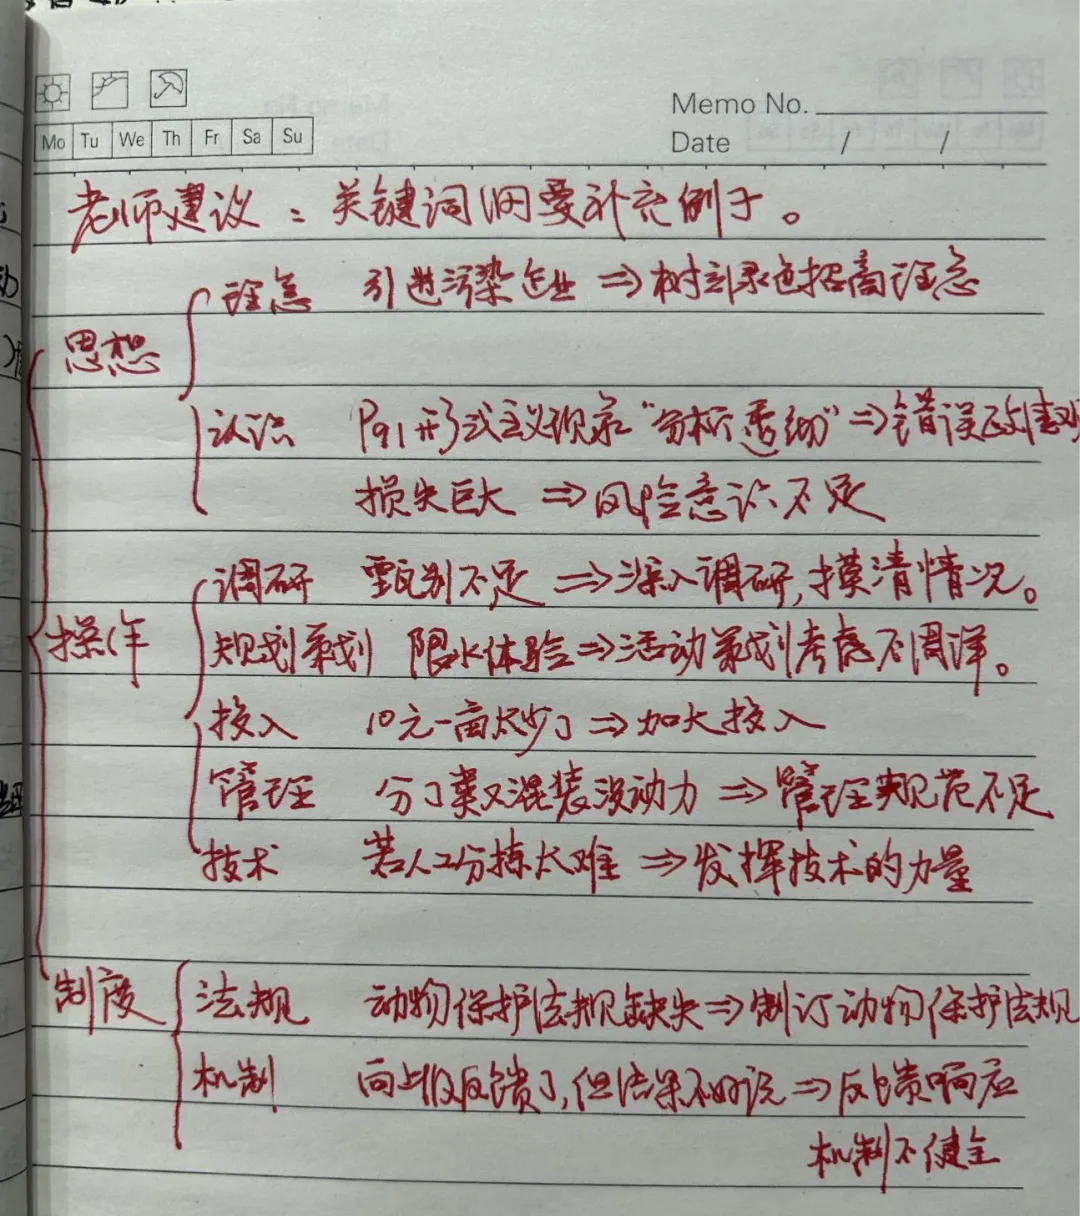 Memo No.
Mo Tu We Th Fr Sa Su
Date / /
老师建议：关键词们要补充例子。
理念 引进污染企业⇒树立绿色招商理念
思想
认识 P91 形式主义现象"⇒错误政绩观
损失巨大⇒风险意识不足
调研 甄别不足⇒深入调研,摸清情况。
操作 规划策划 限水体验⇒活动策划考虑不周详。
投入 10元一亩太少了⇒加大投入
管理 分了类又混装没动力⇒管理规范不足
技术 若人工分拣太难⇒发挥技术的力量
制度 法规 动物保护法规缺失⇒制订动物保护法规
机制 向上级反馈了,但结果不好说⇒反馈响应
机制不健全